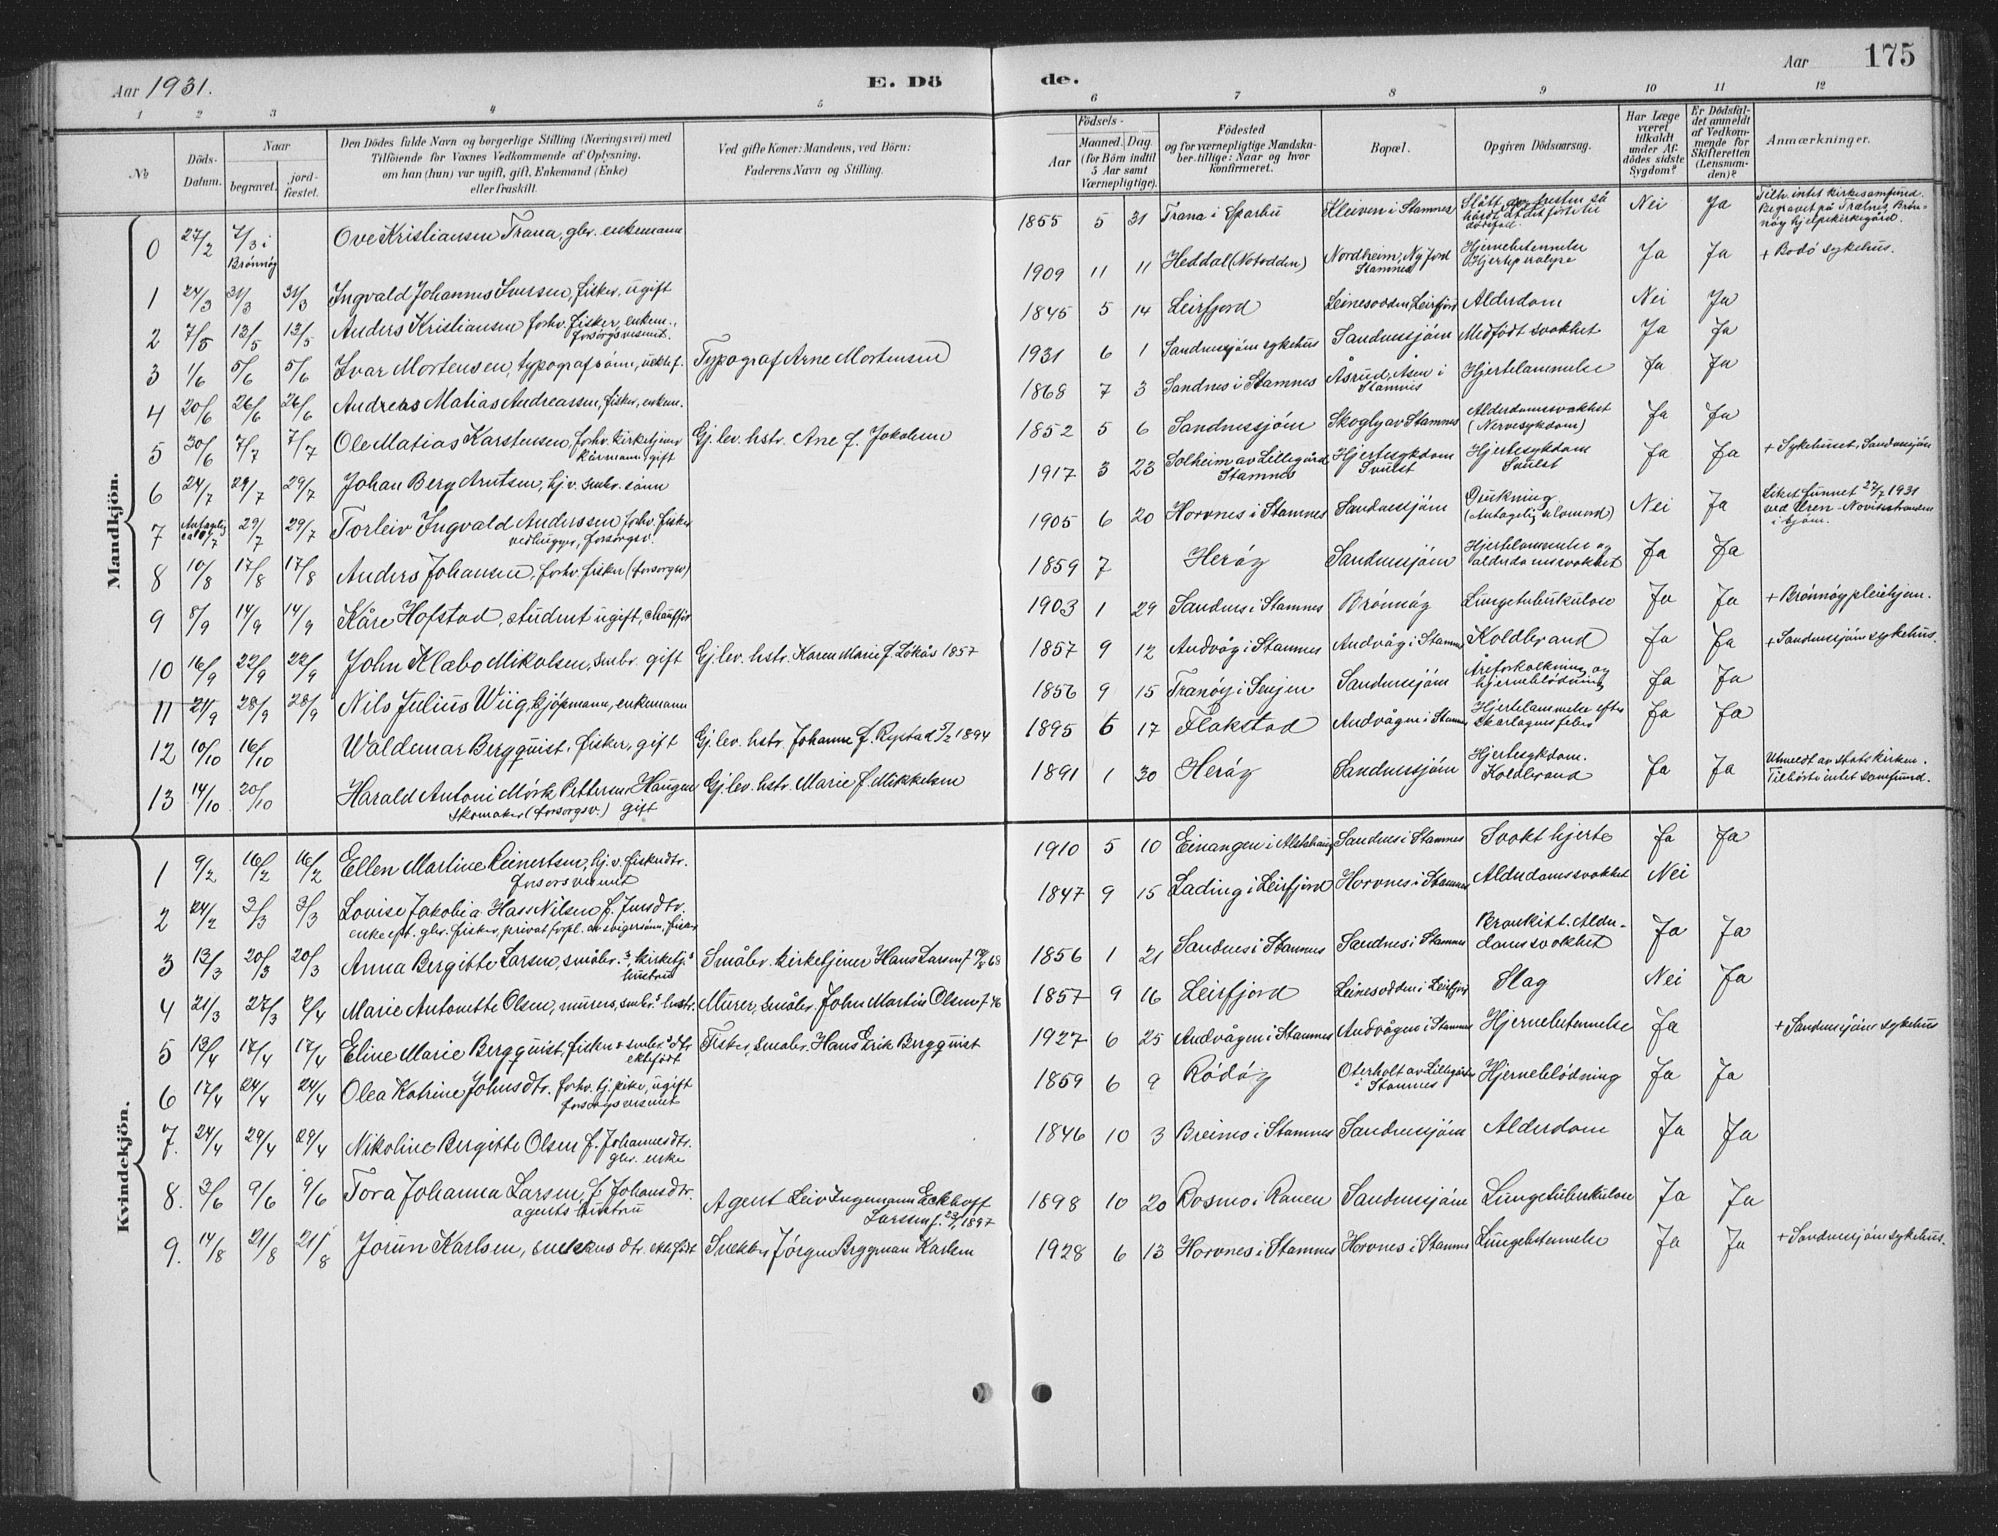 Aar 1931.
E. Dö
de.
Aar
175
1 2 3 4 5
6 7 8 9 10 11 12
No
Döds-Datum.
Naar
begravet.
jord-fæstet.
Den Dödes fulde Navn og borgerlige Stilling (Næringsvei) med
Tilföiende for Voxnes Vedkommende af Oplysning.
om han (hun) var ugift, gift, Enkemand (Enke)
eller fraskilt.
Ved gifte Koner: Mandens, ved Börn:
Faderens Navn og Stilling.
Födsels-
Aar
Maaned. Dag
(for Börn indtil
5 Aar samt
Værnepligtige).
Födested
og for værnepligtige Mandska-
ber tillige: Naar og hvor
konfirmeret.
Bopæl.
Opgiven Dödsaarsag.
Har Læge
været
tilkaldt
under Af-
dödes sidste
Sygdom?
Er Dödsfal-
det anmeldt
af Vedkom-
mende for
Skifteretten
(Lensman-
den)?
Anmærkninger.
Mandkjön.
0 27/2 7/3 i Brönnöy Ove Kristiansen Trana, glv. enkemann 1855 5 31 Trana i Sparbu Kleiven i Stamnes Nei Ja Tilh. intet kirkesamfund.
Begravet på Trælnes, Brön-
nöy hjelpekirkegård.
1 24/3 31/3 31/3 Ingvald Johannes Iversen, fisker, ugift 1909 11 11 Heddal (Notodden) Nordheim, Nyfjord Stamnes Hjernebetennelse Ja Ja + Bodö sykehus.
2 7/5 13/5 13/5 Anders Kristiansen forhv. fisker, enkem., forsorgsvesenet. 1845 5 14 Leirfjord Leinesodden, Leirfjord Alderdom Nei Ja
3 1/6 5/6 5/6 Ivar Mortensen, typografsönn, ektef. Typograf Arne Mortensen 1931 6 1 Sandnessjöen sykehus Sandnessjöen Medfödt svakhet Ja Ja
4 20/6 26/6 26/6 Andreas Matias Andreassen, fisker, enkem. 1868 7 3 Sandnes i Stamnes Åsrud, Åsen i Stamnes Hjertelammelse Ja Ja
5 30/6 7/7 7/7 Ole Matias Karstensen, forhv. kirketjener kårmann, gift Gj. lev. hstr. Ane f. Jakobsen 1852 5 6 Sandnessjöen Skogly av Stamnes Alderdomssvakhet (Nervesykdom) Ja Ja
6 24/7 29/7 29/7 Johan Berg Arntsen, hj. v. smbr. sönn 1917 3 23 Solheim av Lillegård Stamnes Hjertesykdom Svulst Hjertesykdom Svulst Ja Ja + Sykehuset, Sandnessjöen
7 Antagelig 29/7 29/7 Torleiv Ingvald Anderssen forhv. fisker vedhugger, forsorgsv. 1905 6 20 Horvnes i Stamnes Sandnessjöen Drukning (Antagelig selvmord) Nei Ja Liket funnet 27/7 1931
8 10/8 17/8 17/8 Anders Johansen, forhv. fisker (forsorgsv) 1859 7 Heröy Sandnessjöen Hjertelammelse og alderdomssvakhet Ja Ja
9 8/9 14/9 14/9 Kåre Hofstad, student ugift, chaufför 1903 1 29 Sandnes i Stamnes Brönnöy Lungetuberkulose Ja Ja + Brönnöy pleiehjem.
10 16/9 22/9 22/9 John Klæbo Mikalsen, smbr. gift Gj. lev. hstr. Karen Marie f. Lökås 1857 1857 9 12 Andvåg i Stamnes Andvåg i Stamnes Koldbrand Ja Ja + Sandnessjöen sykehus.
11 21/9 28/9 28/9 Nils Julius Wiig, kjöpmann, enkemann 1856 9 15 Tranöy i Senjen Sandnessjöen Åreforkalkning og hjerneblödning Ja Ja
12 10/10 16/10 Waldemar Bergquist, fisker, gift Gj. lev. hstr. Johanne f. 1894 1895 6 17 Flakstad Andvågen i Stamnes Hjertelammelse efter Skarlagensfeber Ja Ja
13 14/10 20/10 Harald Antoni Mörk Pettersen Haugen Skomaker (forsorgsv.) gift Gj. lev. hstr. Marie f. Mikkelsen 1891 1 30 Heröy Sandnessjöen Hjertesykdom. Koldbrand Ja Ja Utmeldt av Statskirken.
Tilhörte intet samfund.
Kvindekjön.
1 9/2 16/2 16/2 Ellen Martine Reinertsen, hj. v. fiskerdtr. forsorsvesenet 1910 5 10 Einangen i Alstahaug Sandnes i Stamnes Svakt hjerte Ja Ja
2 24/2 3/3 3/3 Lovise Jakobia Hass Nilsen f. Jensdtr. enke eft. glv. fisker, privat forpl. av svigersönn, fisker 1847 9 15 Lading i Leirfjord Horvnes i Stamnes Alderdomssvakhet Nei
3 13/3 20/3 20/3 Anna Bergitte Larsen, småbr.s kirketj.s hustru Småbr. kirketjener Hans Larsen 1856 1 21 Sandnes i Stamnes Sandnes i Stamnes Bronkitt. Alder-domssvakhet Ja Ja
4 21/3 27/3 2/4 Marie Antonette Olsen, murers, smbr.s hustr. Murer, småbr. John Martin Olsen 1857 9 16 Leirfjord Leinesodden i Leirfjord Slag Nei Ja
5 13/4 17/4 17/4 Eline Marie Bergquist, fisker o smbr.s dtr ektefödt Fisker, småbr. Hans Erik Bergquist 1927 6 25 Andvågen i Stamnes Andvågen i Stamnes Hjernebetennelse Ja + Sandnessjöen sykehus
6 17/4 24/4 24/4 Olea Katrine Johnsdtr. forhv. tj. pike, ugift forsorgsvesenet 1859 6 9 Rödöy Oterholt av Lillegården i Stamnes Hjerneblödning Ja Ja
7. 24/4 29/4 29/4 Nikoline Bergitte Olsen f. Johannesdtr. glv. enke 1846 10 3 Breimo i Stamnes Sandnessjöen Alderdom Ja Ja
8. 3/6 9/6 9/6 Tora Johanna Larsen, f. Johansdtr. agents hustru Agent Leiv Ingemann Eckhoff Larssen f. 1897 1898 10 20 Rosmo i Ranen Sandnessjöen Lungetuberkulose Ja Ja
9. 14/8 21/8 21/8 Jorun Karlsen, snekkers dtr. ektefödt Snekker Jörgen Bergman Karlsen 1928 6 13 Horvnes i Stamnes Horvnes i Stamnes Lungebetennelse Ja Ja + Sandnessjöen sykehus.